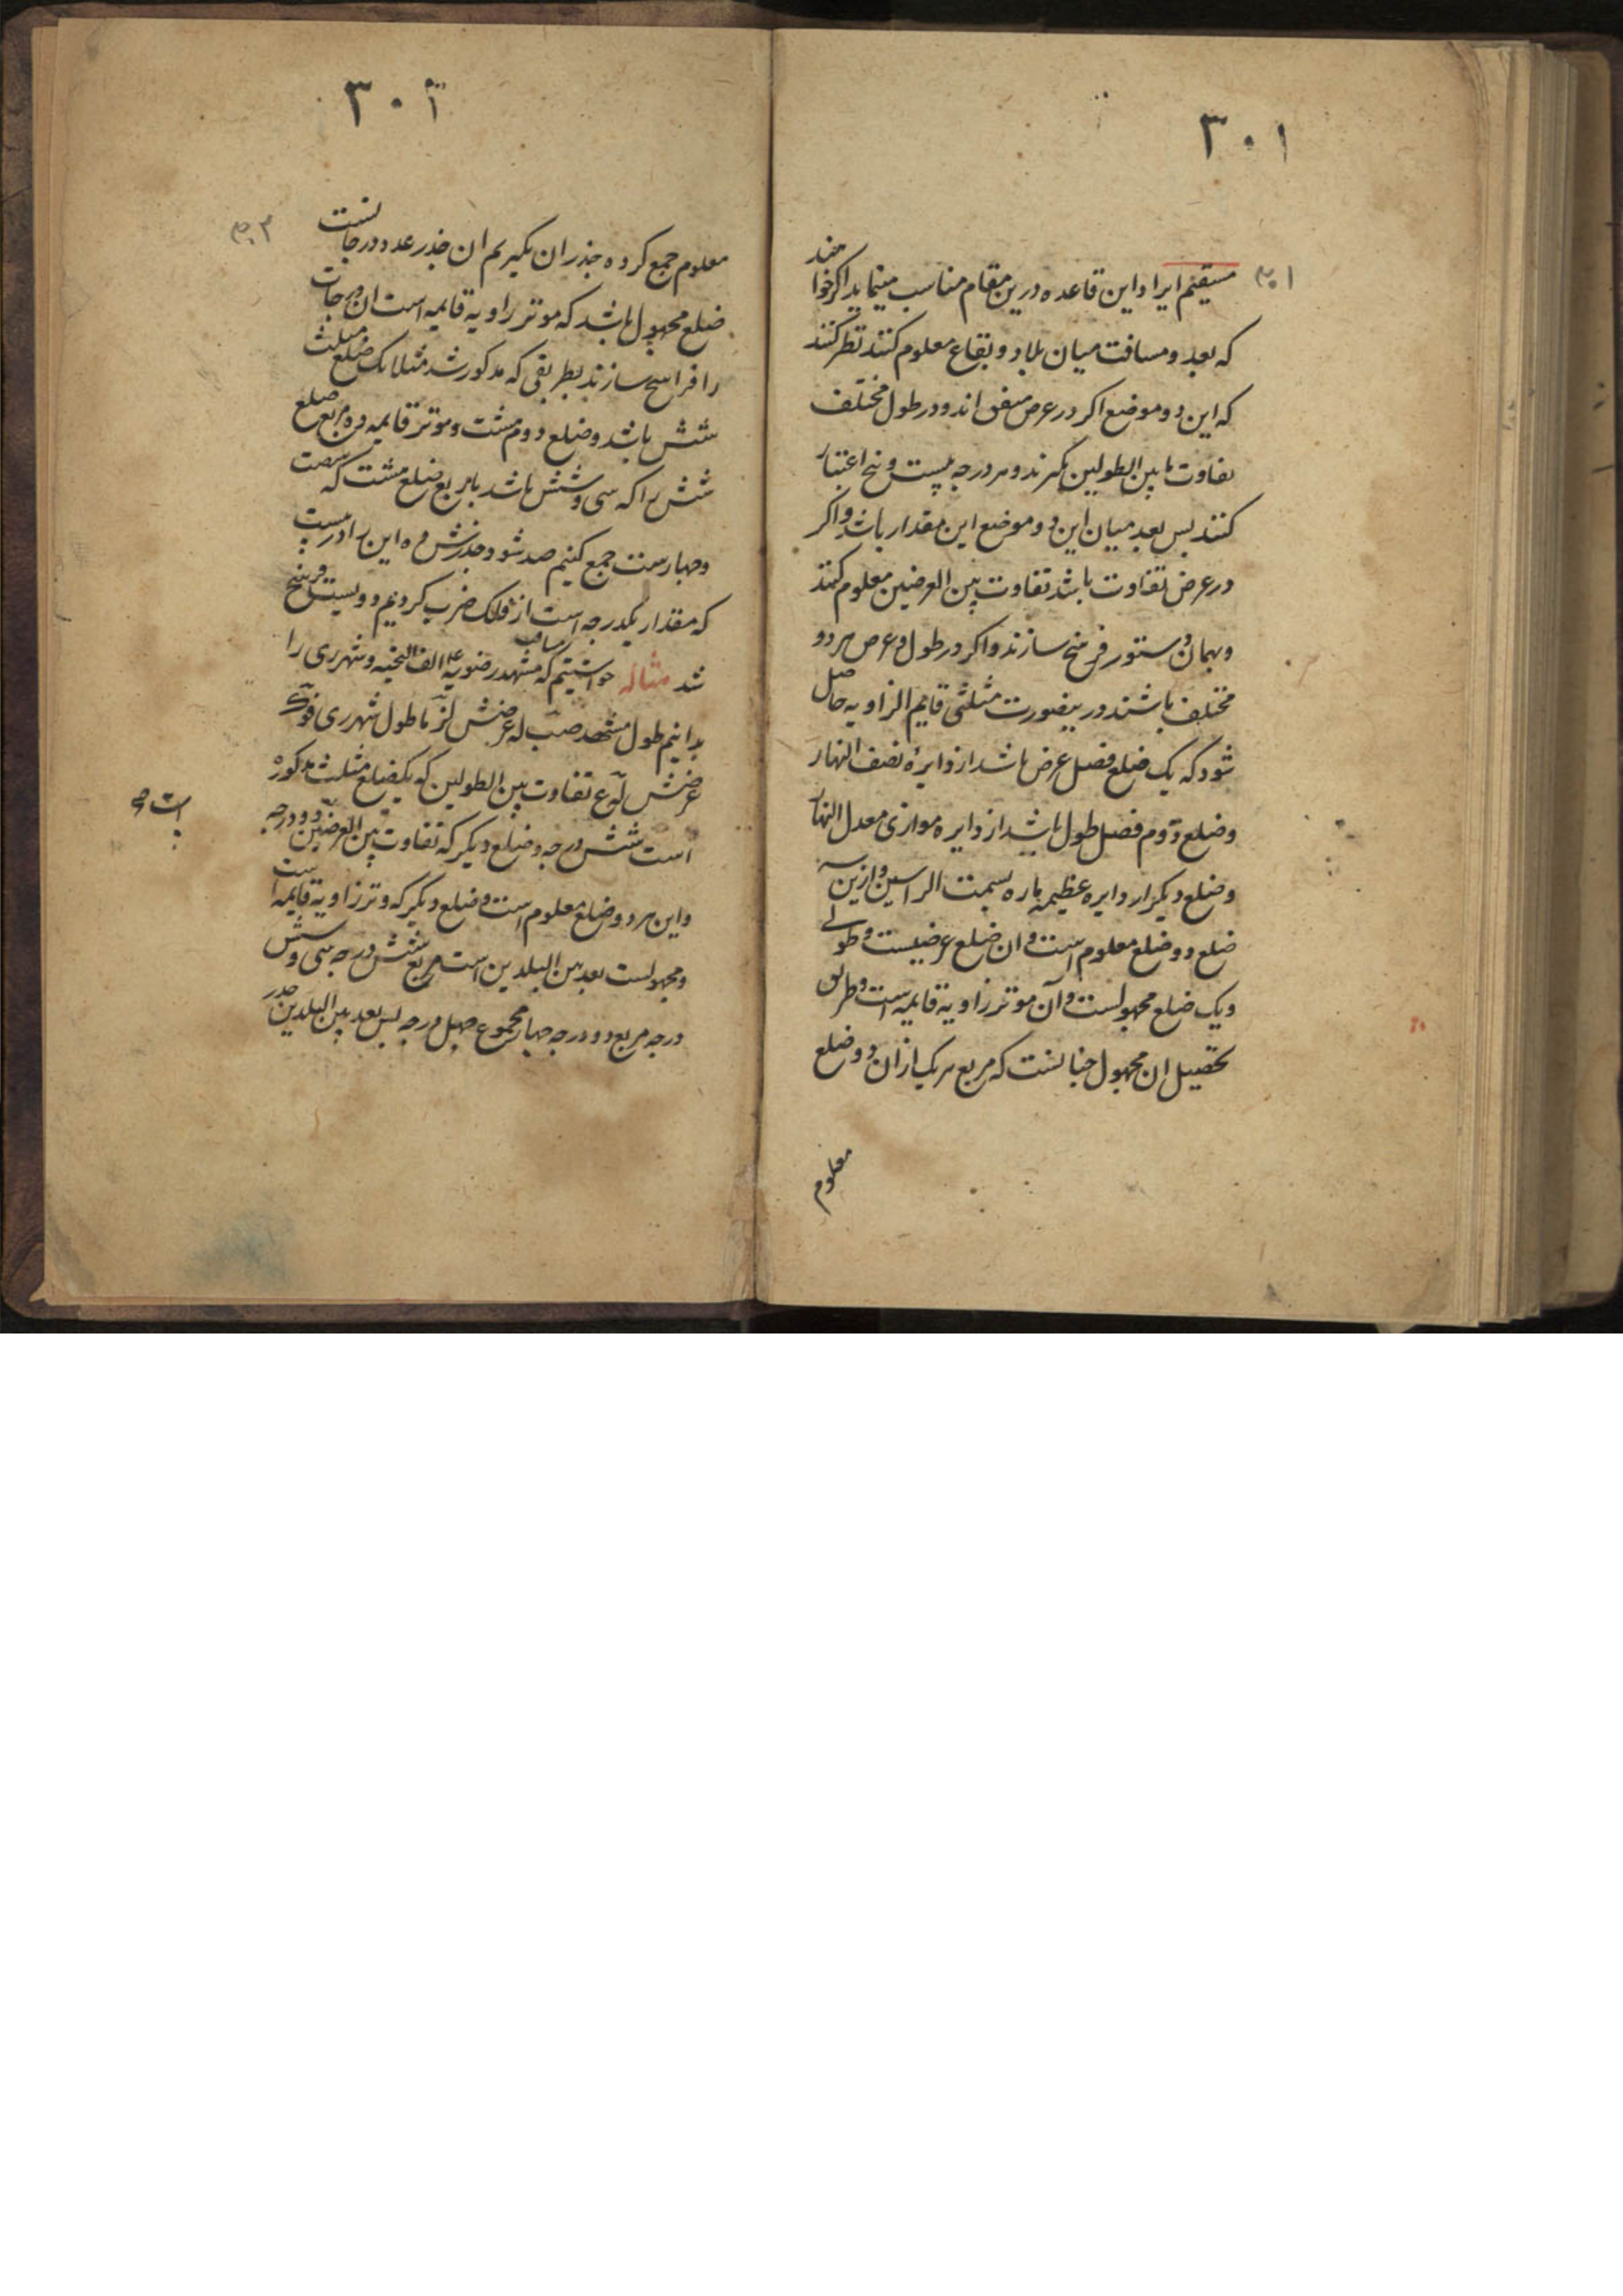 ۳۰۱
مستقیم ایراد این قاعده درین مقام مناسب مینماید اگر خواهند
که بعد و مسافت میان بلاد و بقاع معلوم کنند نظر کنند
که این دو موضع اکر در عرض متفق اند و در طول مختلف
تفاوت ما بین الطولین گیرند و هر درجه بیست و پنج اعتبار
کنند پس بعد میان این دو موضع این مقدار باشد و اکر
در عرض تفاوت باشد تفاوت بین العرضین معلوم کنند
و بهمان دستور فرسخ سازند و اکر در طول و عرض هر دو
مختلف باشند درینصورت مثلثی قایم الزاویه حاصل
شود که یک ضلع فضل عرض باشد از دایرهٔ نصف النهار
و ضلع دوم فصل طول باشد از دایره موازی معدل النهار
و ضلع دیکر از دایره عظیمه ماره بسمت الراسین و ازین سه
ضلع دو ضلع معلوم است و ان ضلع عرضیست و طولی
و یک ضلع مجهولست و آن موتر زاویه قایمه است و طریق
تحصیل ان مجهول چنانست که مربع هر یک از ان دو ضلع
معلوم
۳۰۲
معلوم جمع کرده جذر ان بکیریم ان جذر عدد درجانست
ضلع مجهول باشد که موتر زاویه قایمه است ان درجات
را فراسخ سازند بطریقی که مذکور شد مثلا یک ضلع مثلث
شش باشد و ضلع دوم هشت و موتر قایمه ده مربع ضلع
شش را که سی و شش باشد با مربع ضلع هشت که شصت
و چهارست جمع کنیم صد شود و جذرش ده این را در بیست
که مقدار یکدرجه است از فلک ضرب کردیم دویست فرسخ
شد مثاله خواستیم که مسافت مشهد رضویه علیه الف التحیه و شهر ری را
بدانیم طول مشهد صب له عرضش لز ما طول شهر ری فو ک
عرضش له ع تفاوت بین الطولین که یکضلع مثلث مذکوره
است شش درجه و ضلع دیکر که تفاوت بین العرضین دو درجه
است
و این هر دو ضلع معلوم است و ضلع دیکر که وتر زاویه قایمه است
و مجهولست بعد بین البلدین است مربع شش درجه سی و شش
درجه مربع دو درجه چهار مجموع چهل درجه پس بعد بین البلدین جذر